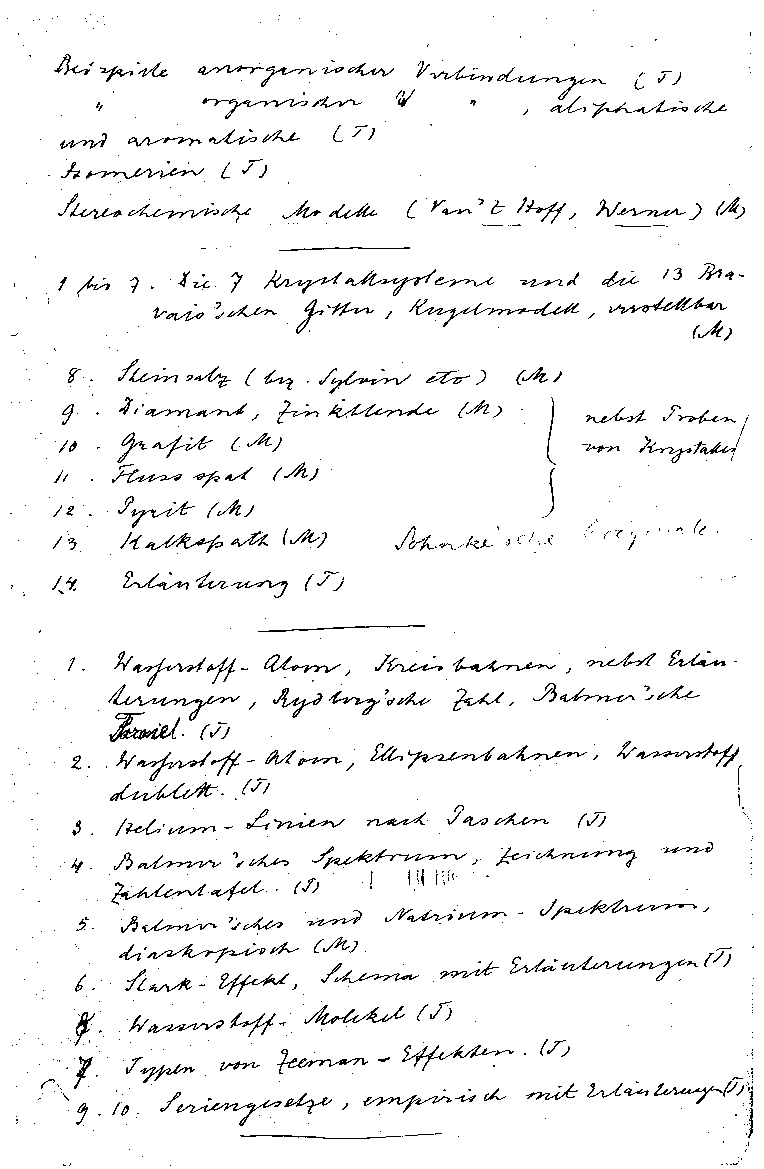 Beispiele anorganischer Verbindungen (T)
" organischer " , aliphatische
und aromatische (T)
Isomerien (T)
Stereochemische Modelle (Van't Hoff, Werner) (M)
1 bis 7. Die 7 Krystallsysteme und die 13 Bra-
vais'schen Gitter, Kugelmodell, verstellbar
(M)
8. Steinsalz (bez. Sylvin etc) (M)
9. Diamant, Zinkblende (M)
10. Grafit (M)
11. Flussspat (M)
12. Pyrit (M)
nebst Proben
von Krystallen
13 Kalkspath (M) Schonke'sche Originale.
14. Erläuterung (T)
1. Wasserstoff-Atom, Kreisbahnen, nebst Erläu-
terungen, Rydberg'sche Zahl, Balmer'sche
Formel. (T)
2. Wasserstoff-Atom, Ellipsenbahnen, Wasserstoff
dublett. (T)
3. Helium-Linien nach Paschen (T)
4. Balmer'sches Spektrum, Zeichnung und
Zahlentafel. (T)
5. Balmer'sches und Natrium-Spektrum,
diaskopisch (M)
6. Stark-Effekt, Schema mit Erläuterungen (T)
8. Wasserstoff-Molekel (T)
7. Typen von Zeeman-Effekten. (T)
9. 10. Seriengesetze, empirisch mit Erläuterungen (T)